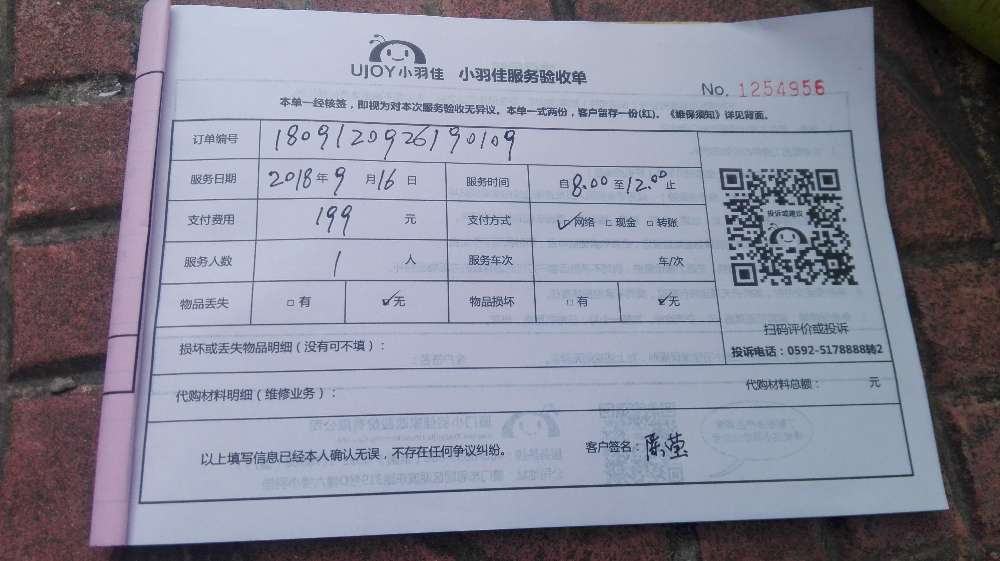 UJOY小羽佳 小羽佳服务验收单
No. 1254956
本单一经核签，即视为对本次服务验收无异议。本单一式两份，客户留存一份(红)。《维保须知》详见背面。
订单编号 1809120926190109
服务日期 2018年9月16日 服务时间 自8.00至12.00止
支付费用 199 元 支付方式 ☑网络 □现金 □转账
投诉或建议
服务人数 1 人 服务车次 车/次
物品丢失 □有 ☑无 物品损坏 □有 ☑无
扫码评价或投诉
投诉电话：0592-5178888转2
损坏或丢失物品明细（没有可不填）：
代购材料明细（维修业务）： 代购材料总额： 元
以上填写信息已经本人确认无误，不存在任何争议纠纷。 客户签名：陈莹